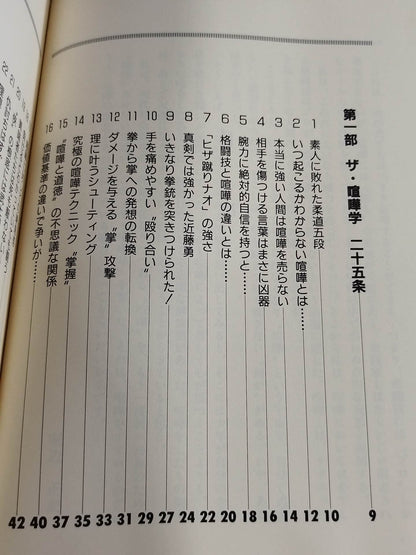 第一部 ザ・喧嘩学 二十五条 9
1 素人に敗れた柔道五段 10
2 いつ起こるかわからない喧嘩とは…… 12
3 本当に強い人間は喧嘩を売らない 14
4 相手を傷つける言葉はまさに凶器 16
5 腕力に絶対的自信を持つと…… 18
6 格闘技と喧嘩の違いとは…… 20
7 「ヒザ蹴りナオ」の強さ 22
8 真剣では強かった近藤勇 24
9 いきなり拳銃を突きつけられた！ 27
10 手を痛めやすい〝殴り合い〟 29
11 拳から掌への発想の転換 31
12 ダメージを与える〝掌〟攻撃 33
13 理に叶うシューティング 35
14 究極の喧嘩テクニック〝掌握〟 37
15 〝喧嘩と道徳〟の不思議な関係 40
16 価値基準の違いで争いが…… 42